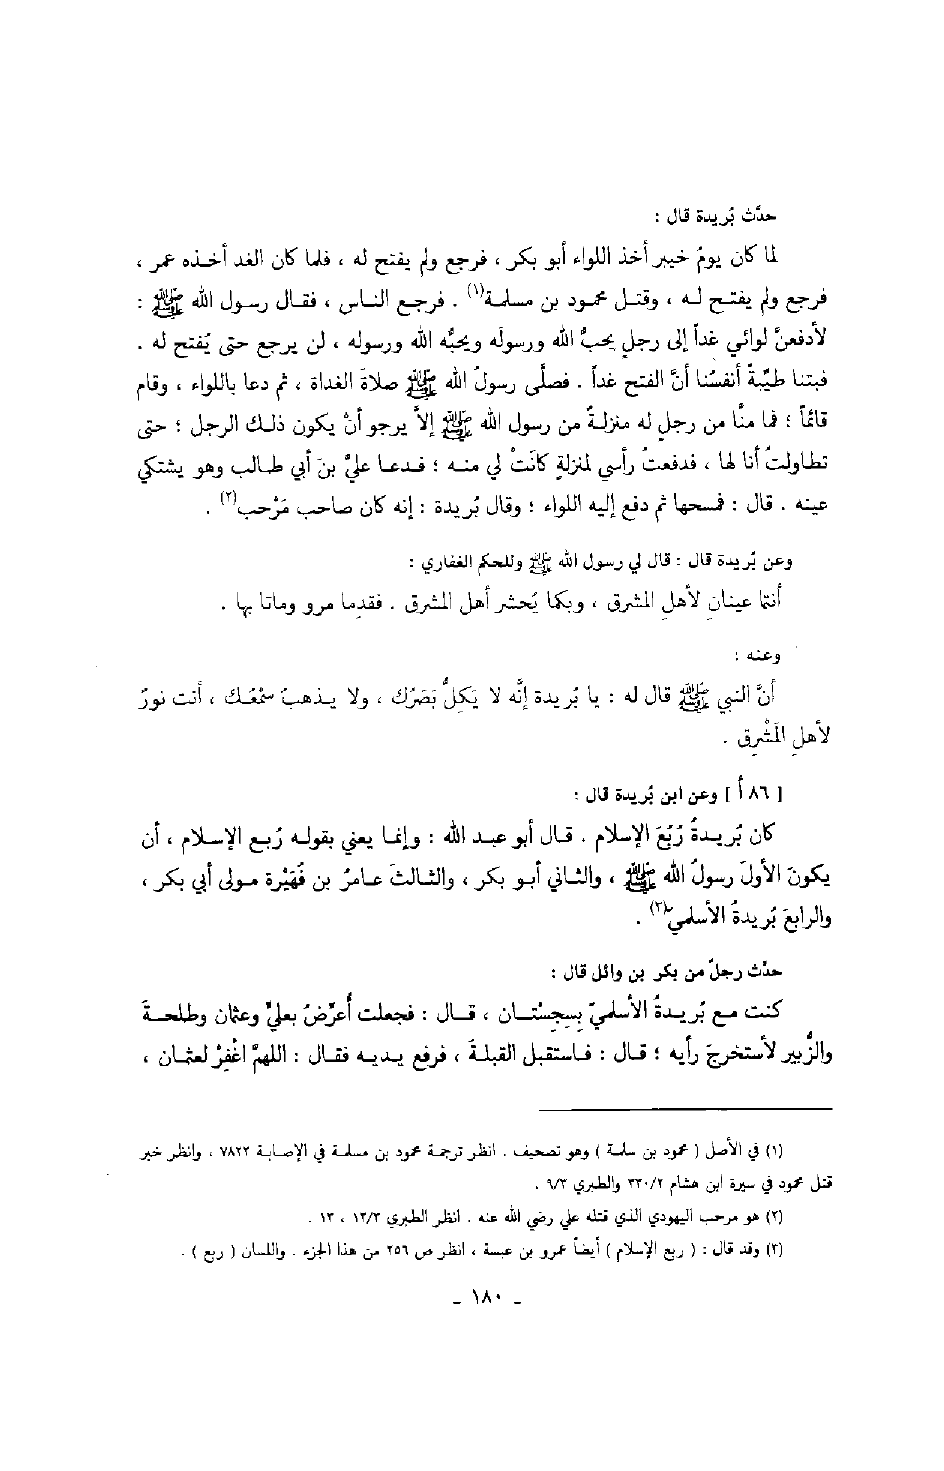 حدَّث بُريدة قال :
لما كان يومُ خيبر أخذ اللواء أبو بكر ، فرجع ولم يفتح له ، فلما كان الغد أخـذه عمر ،
فرجع ولم يفتـح لـه ، وقتـل محمود بن مسلمـة(١) . فرجع النـاس ، فقـال رسـول الله ﷺ :
لأدفعنَّ لوائي غداً إلى رجلٍ يحبُّ الله ورسوله ويحبُّه الله ورسوله ، لن يرجع حتى يُفتح له .
فبتنا طيِّبةً أنفسُنا أنَّ الفتح غداً . فصلَّى رسولُ الله ﷺ صلاةَ الغداة ، ثم دعا باللواء ، وقام
قائماً ؛ فما منَّا من رجلٍ له منزلـةً من رسول الله ﷺ إلاَّ يرجو أنْ يكون ذلـك الرجل ؛ حتى
تطاولتُ أنا لها ، فدفعتُ رأسي لمنزلةٍ كانَتْ لي منـه ؛ فـدعـا عليَّ بنَ أبي طـالب وهو يشتكي
عينه . قال : فمسحها ثم دفع إليه اللواء ؛ وقال بُريدة : إنه كان صاحب مَرْحب(٢) .
وعن بُريدة قال : قال لي رسول الله ﷺ وللحكم الغفاري :
أنتما عينانِ لأهلِ المشرق ، وبكما يُحشر أهل المشرق . فقدِما مرو وماتا بها .
وعنه :
أنَّ النبي ﷺ قال له : يا بُريدة إنَّه لا يَكِلُّ بَصَرُك ، ولا يـذهبُ سَمْعُـك ، أنت نورٌ
لأهلِ المَشْرِق .
[ ٨٦ أ ] وعن ابن بُريدة قال :
كان بُريـدةُ رُبُعَ الإسلام . قـال أبو عبـد الله : وإنمـا يعني بقولـه رُبـع الإسـلام ، أن
يكونَ الأولَ رسولُ الله ﷺ ، والثـاني أبـو بكر ، والثـالثَ عـامرُ بن فُهَيْرة مـولى أبي بكر ،
والرابعَ بُريدةُ الأسلميّ(٣) .
حدَّث رجلٌ من بكر بن وائل قال :
كنت مـع بُريـدةَ الأسلميّ بِسِجِسْتـان ، قـال : فجعلت أُعرِّضُ بعليٍّ وعثمان وطلحـةَ
والزُّبير لأستخرجَ رأيه ؛ قـال : فـاستقبل القبلـةَ ، فرفع يـديـه فقـال : اللهمَّ اغْفِرْ لعثمان ،
(١) في الأصل ( محمود بن سلمة ) وهو تصحيف . انظر ترجمة محمود بن مسلمة في الإصابة ٧٨٢٢ ، وانظر خبر
قتل محمود في سيرة ابن هشام ٣٣٠/٢ والطبري ٩/٣ .
(٢) هو مرحب اليهودي الذي قتله علي رضي الله عنه . انظر الطبري ١٢/٣ ، ١٣ .
(٣) وقد قال : ( ربع الإسلام ) أيضاً عمرو بن عبسة ، انظر ص ٢٥٦ من هذا الجزء . واللسان ( ربع ) .
- ١٨٠ -